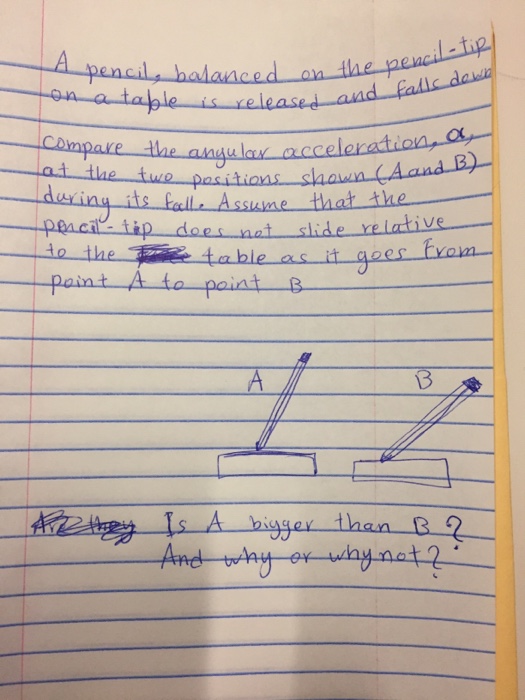 A pencil, balanced on the pencil-tip
on a table is released and falls down
compare the angular acceleration, α,
at the two positions shown (A and B)
during its fall. Assume that the
pencil-tip does not slide relative
to the table as it goes from
point A to point B
A B
Is A bigger than B?
And why or why not?